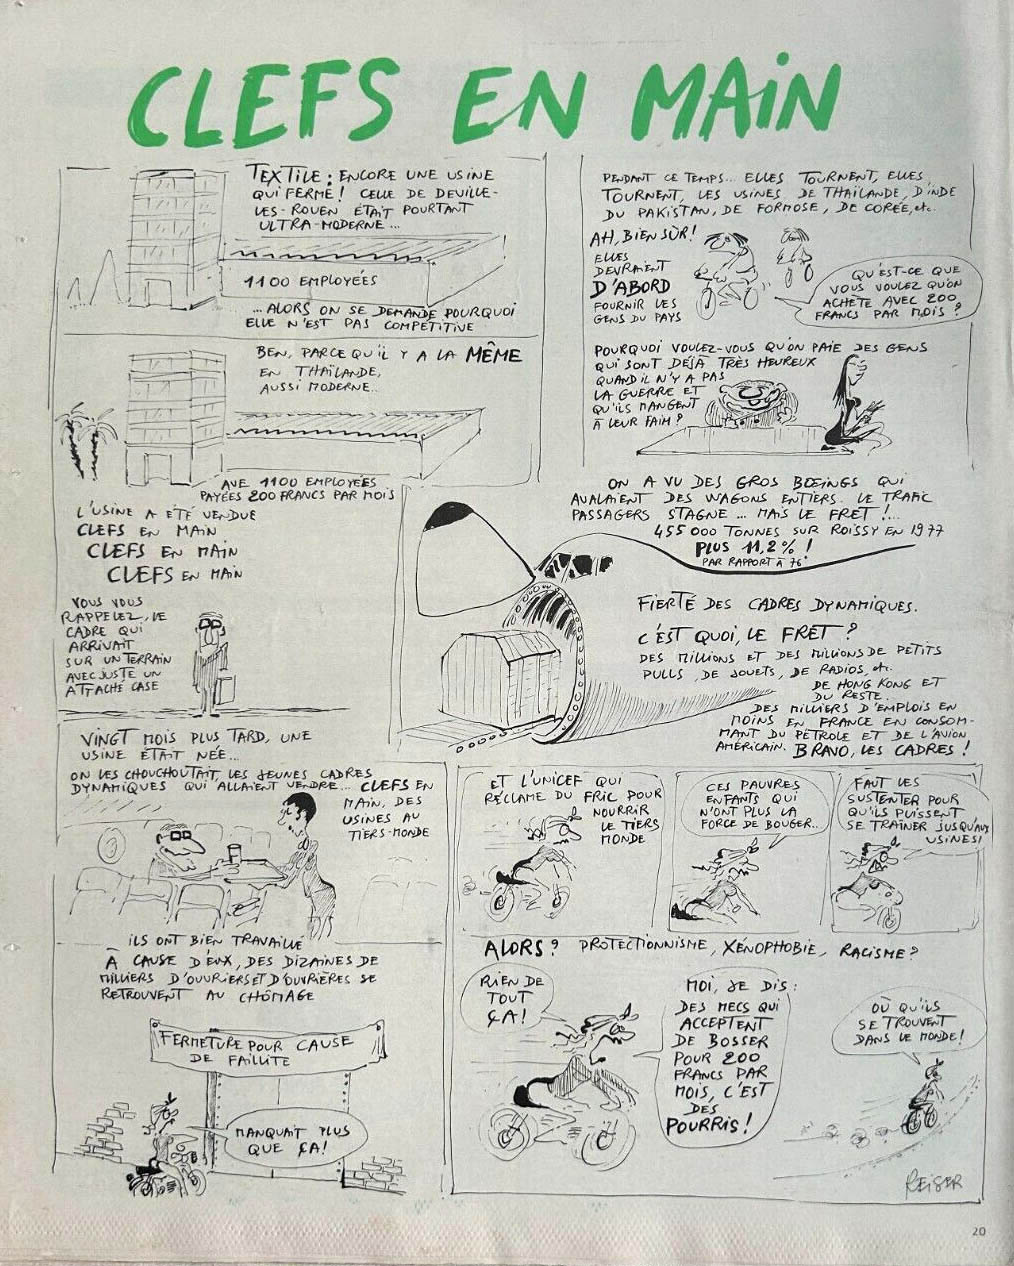 CLEFS EN MAIN
TEXTILE : ENCORE UNE USINE
QUI FERME ! CELLE DE DEVILLE-
LES-ROUEN ÉTAIT POURTANT
ULTRA-MODERNE...
1100 EMPLOYÉES
... ALORS ON SE DEMANDE POURQUOI
ELLE N'EST PAS COMPÉTITIVE
BEN, PARCE QU'IL Y A LA MÊME
EN THAÏLANDE,
AUSSI MODERNE...
AVE 1100 EMPLOYÉES
PAYÉES 200 FRANCS PAR MOIS
L'USINE A ÉTÉ VENDUE
CLEFS EN MAIN
CLEFS EN MAIN
CLEFS EN MAIN
VOUS VOUS
RAPPELEZ, LE
CADRE QUI
ARRIVAIT
SUR UN TERRAIN
AVEC JUSTE UN
ATTACHÉ CASE
VINGT MOIS PLUS TARD, UNE
USINE ÉTAIT NÉE...
ON LES CHOUCHOUTAIT, LES JEUNES CADRES
DYNAMIQUES QUI ALLAIENT VENDRE... CLEFS EN
MAIN, DES
USINES AU
TIERS-MONDE
3
ILS ONT BIEN TRAVAILLÉ
À CAUSE D'EUX, DES DIZAINES DE
MILLIERS D'OUVRIERS ET D'OUVRIÈRES SE
RETROUVENT AU CHÔMAGE
FERMETURE POUR CAUSE
DE FAILLITE
MANQUAIT PLUS
QUE ÇA!
PENDANT CE TEMPS... ELLES TOURNENT, ELLES
TOURNENT, LES USINES DE THAÏLANDE, D'INDE
DU PAKISTAN, DE FORMOSE, DE CORÉE, etc.
AH, BIEN SÛR!
ELLES
DEVRAIENT
D'ABORD
FOURNIR LES
GENS DU PAYS
QU'EST-CE QUE
VOUS VOULEZ QU'ON
ACHÈTE AVEC 200
FRANCS PAR MOIS ?
POURQUOI VOULEZ-VOUS QU'ON PAIE DES GENS
QUI SONT DÉJÀ TRÈS HEUREUX
QUAND IL N'Y A PAS
LA GUERRE ET
QU'ILS MANGENT
À LEUR FAIM ?
ON A VU DES GROS BOEINGS QUI
AVALAIENT DES WAGONS ENTIERS. LE TRAFIC
PASSAGERS STAGNE... MAIS LE FRET !...
455 000 TONNES SUR ROISSY EN 1977
PLUS 11,2% !
PAR RAPPORT À 76
FIERTÉ DES CADRES DYNAMIQUES.
C'EST QUOI, LE FRET ?
DES MILLIONS ET DES MILLIONS DE PETITS
PULLS, DE JOUETS, DE RADIOS, etc.
DE HONG KONG ET
DU RESTE.
DES MILLIERS D'EMPLOIS EN
MOINS EN FRANCE EN CONSOM-
MANT DU PÉTROLE ET DE L'AVION
AMÉRICAIN. BRAVO, LES CADRES !
ET L'UNICEF QUI
RÉCLAME DU FRIC POUR
NOURRIR
LE TIERS
MONDE
CES PAUVRES
ENFANTS QUI
N'ONT PLUS LA
FORCE DE BOUGER..
FAUT LES
SUSTENTER POUR
QU'ILS PUISSENT
SE TRAÎNER JUSQU'AUX
USINES!
ALORS ? PROTECTIONNISME, XÉNOPHOBIE, RACISME ?
RIEN DE
TOUT
ÇA!
MOI, JE DIS :
DES MECS QUI
ACCEPTENT
DE BOSSER
POUR 200
FRANCS PAR
MOIS, C'EST
DES
POURRIS !
OÙ QU'ILS
SE TROUVENT
DANS LE MONDE!
REISER
20